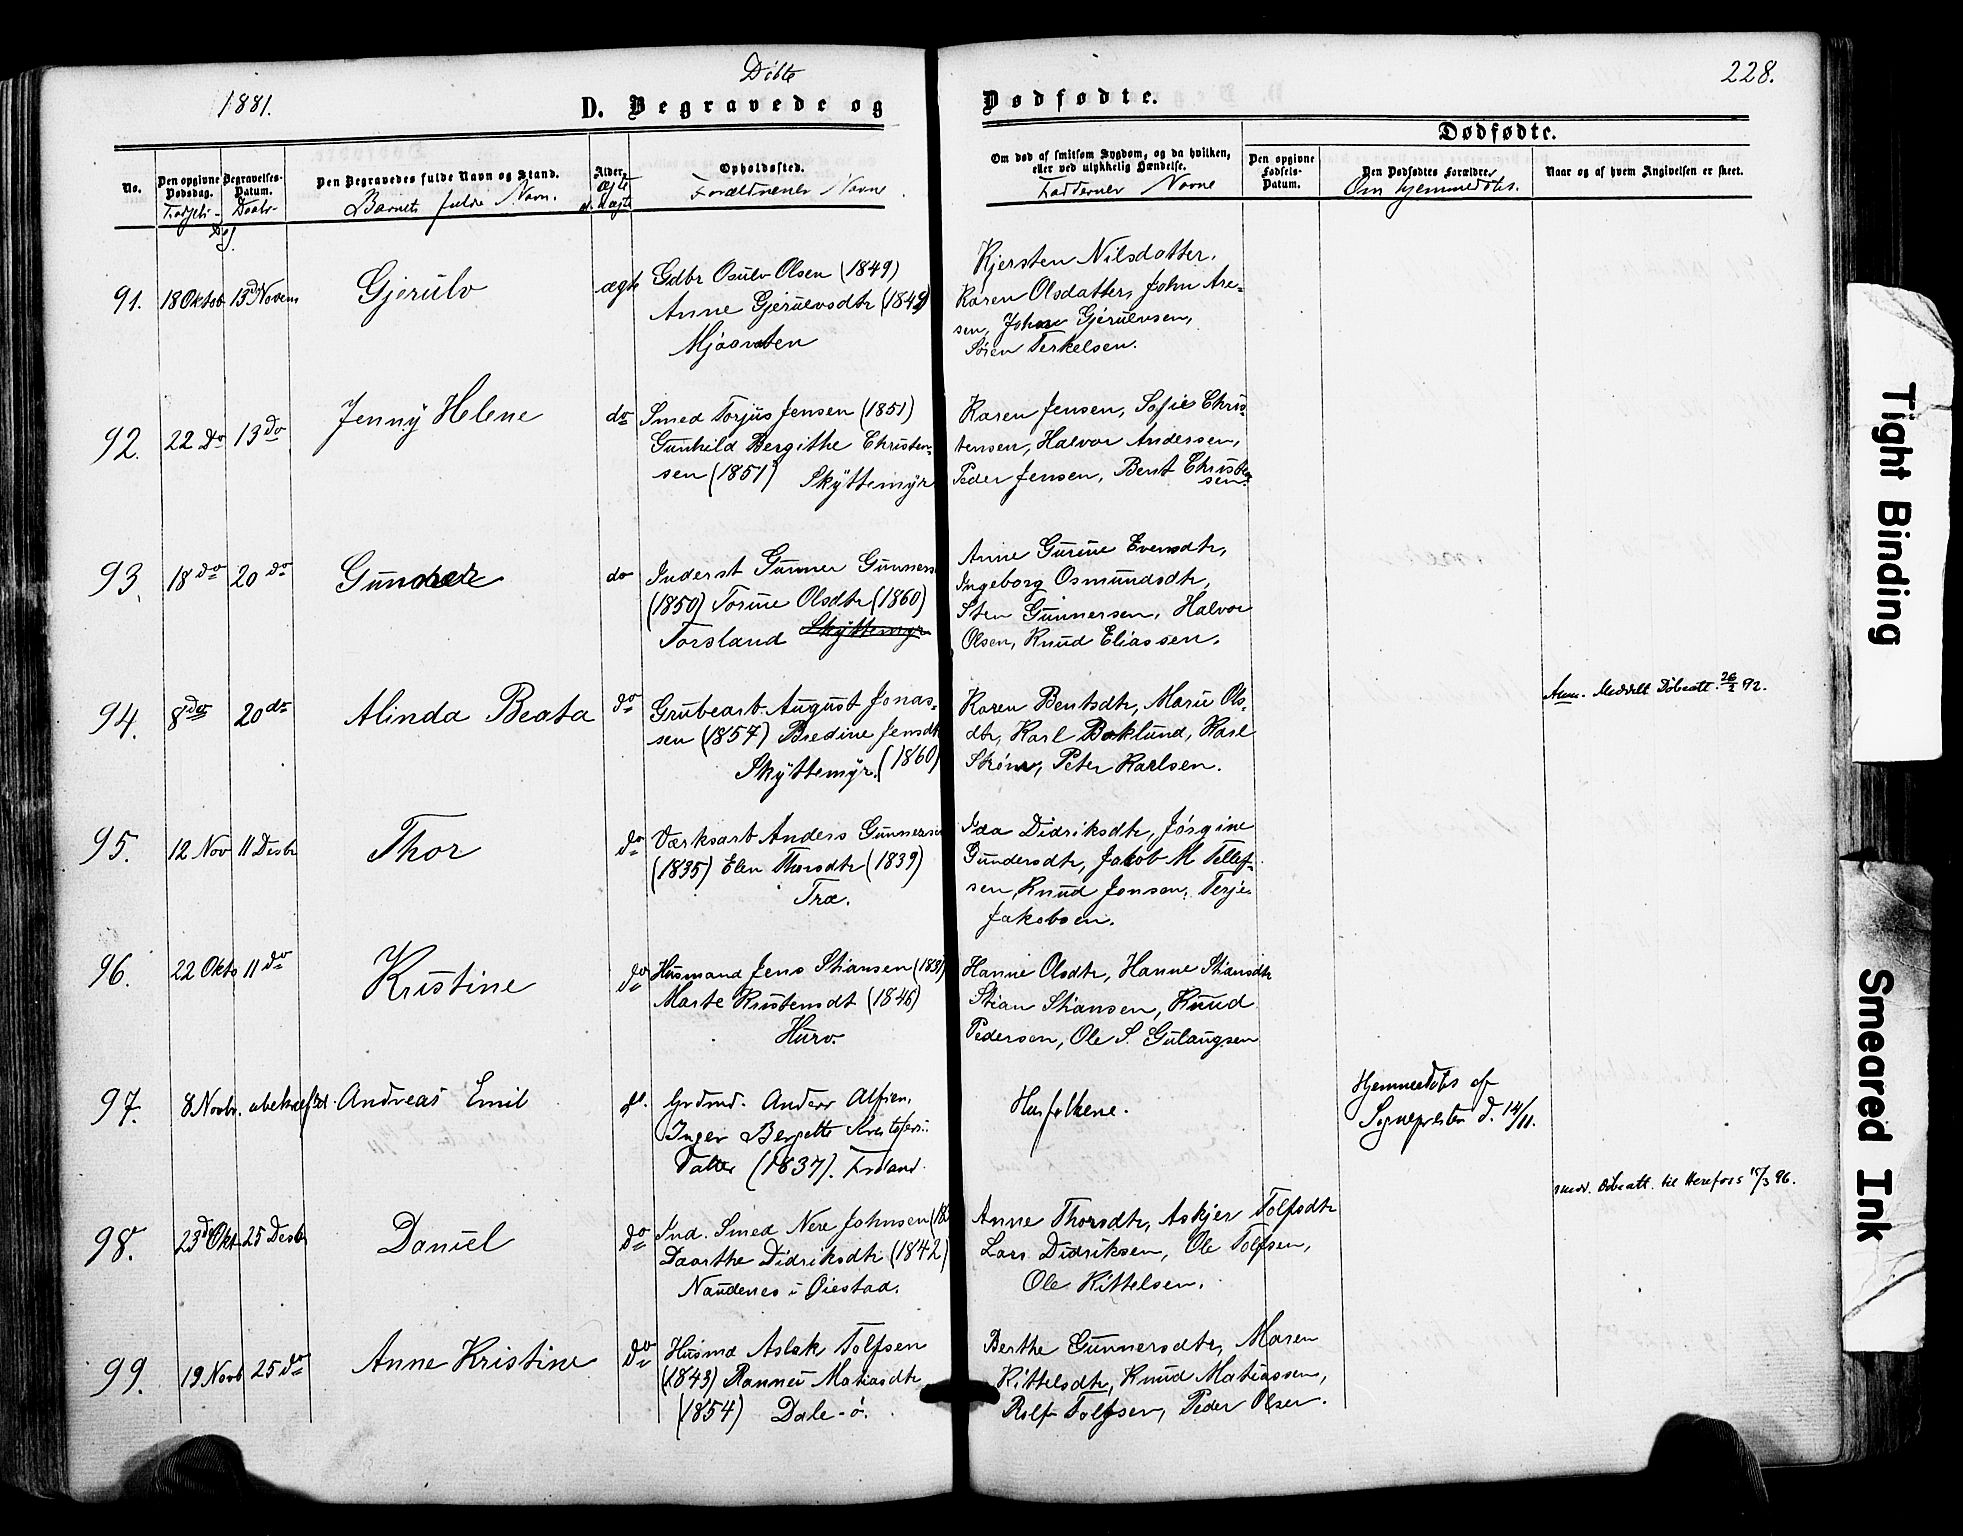 1881.
Døbte
D. Begravede og
Dødfødte.
228.
No.
Den opgivne Dødsdag.
Fødsels-
Dag.
Begravelses-Datum.
Daabs-
Den Begravedes fulde Navn og Stand.
Barnets fulde Navn.
Alder.
Ægte
el. uægte
Opholdssted.
Forældrenes Navne
Om død af smitsom Sygdom, og da hvilken,
eller ved ulykkelig Hændelse.
Faddernes Navne
Dødfødte.
Den opgivne Fødsels-Datum.
Den Dødfødtes Forældre.
Om hjemmedøbt.
Naar og af hvem Angivelsen er skeet.
91. 18 Oktob 13de Novem Gjerulv ægte
Gdbr Osulv Olsen (1849)
Anne Gjerulvsdtr (1849)
Mjaavaten
Kjersten Nilsdatter,
Karen Olsdatter, John Are-
sen, Johne Gjerulvsen,
Søren Terkelsen.
92. 22 Do 13 do Jenny Helene do
Smed Torjus Jensen (1851)
Gunhild Bergithe Christen-
sen (1851) Skyttemyr
Karen Jensen, Sofie Chris-
tensen, Halvor Andersen,
Peder Jensen, Bent Christen
sen.
93. 18 do 20 do do
Inderst Gunner Gunners
(1850) Torine Olsdtr (1860)
Torsland Skyttemyr
Anne Gurine Evensdtr,
Ingeborg Osmundsdtr,
Sten Gunnersen, Halvor
Olsen, Knud Eliassen.
94. 8 do 20 do Alinda Beata do
Grubearb. August Jonas-
sen (1857) Bredine Jensdtr
Skyttemyr. (1860)
Karen Bentsdtr, Marie Ols-
dtr, Karl Boklund, Karl
Strøm, Peter Karlsen.
Anm. Meddelt Døbeatt. 26/2 92.
95. 12 Nov 11 Desbr Thor do
Værksarb Anders Gunnersen
(1835) Elen Thorsdtr (1839)
Træ.
Ida Didriksdtr, Jørgine
Gundersdtr, Jakob M Tellef-
sen, Knud Jonsen, Terje
Jakobsen.
96. 22 Okto 11 do Kristine do
Husmand Jens Stiansen (183
Marte Kristensdt (1846)
Hurv.
Hanne Olsdtr, Hanne Stiansdtr
Stian Stiansen, Knud
Pedersen, Ole S. Gulaugsen
97. 8 Novbr. Andreas Emil
Grdmd. Anders Alfsen,
Inger Bergette Kristofers-
datter (1837). Frøland.
Husfolkene.
Hjemmedøbt af
Sognepresten d. 14/11.
98. 23de Okt 25 Desb Daniel do
Ind. Smed Nere Johnsen (18
Daarthe Didriksdtr (1842)
Naudenes i Øiestad.
Anne Thorsdtr, Askjer Tolfsdtr
Lars Didriksen, Ole Tolfsen,
Ole Kittelsen.
medd. Døbeatt. til Herefoss 15/3 96.
99. 19 Novb 25 do Anne Kristine do
Husmd Aslak Tolfsen
(1843) Rannei Matiasdtr
(1854) Dale-ø.
Berthe Gunnersdtr, Maren
Kittelsdtr, Knud Matiassen,
Rolf Tolfsen, Peder Olsen.
Tight Binding
Smeared Ink